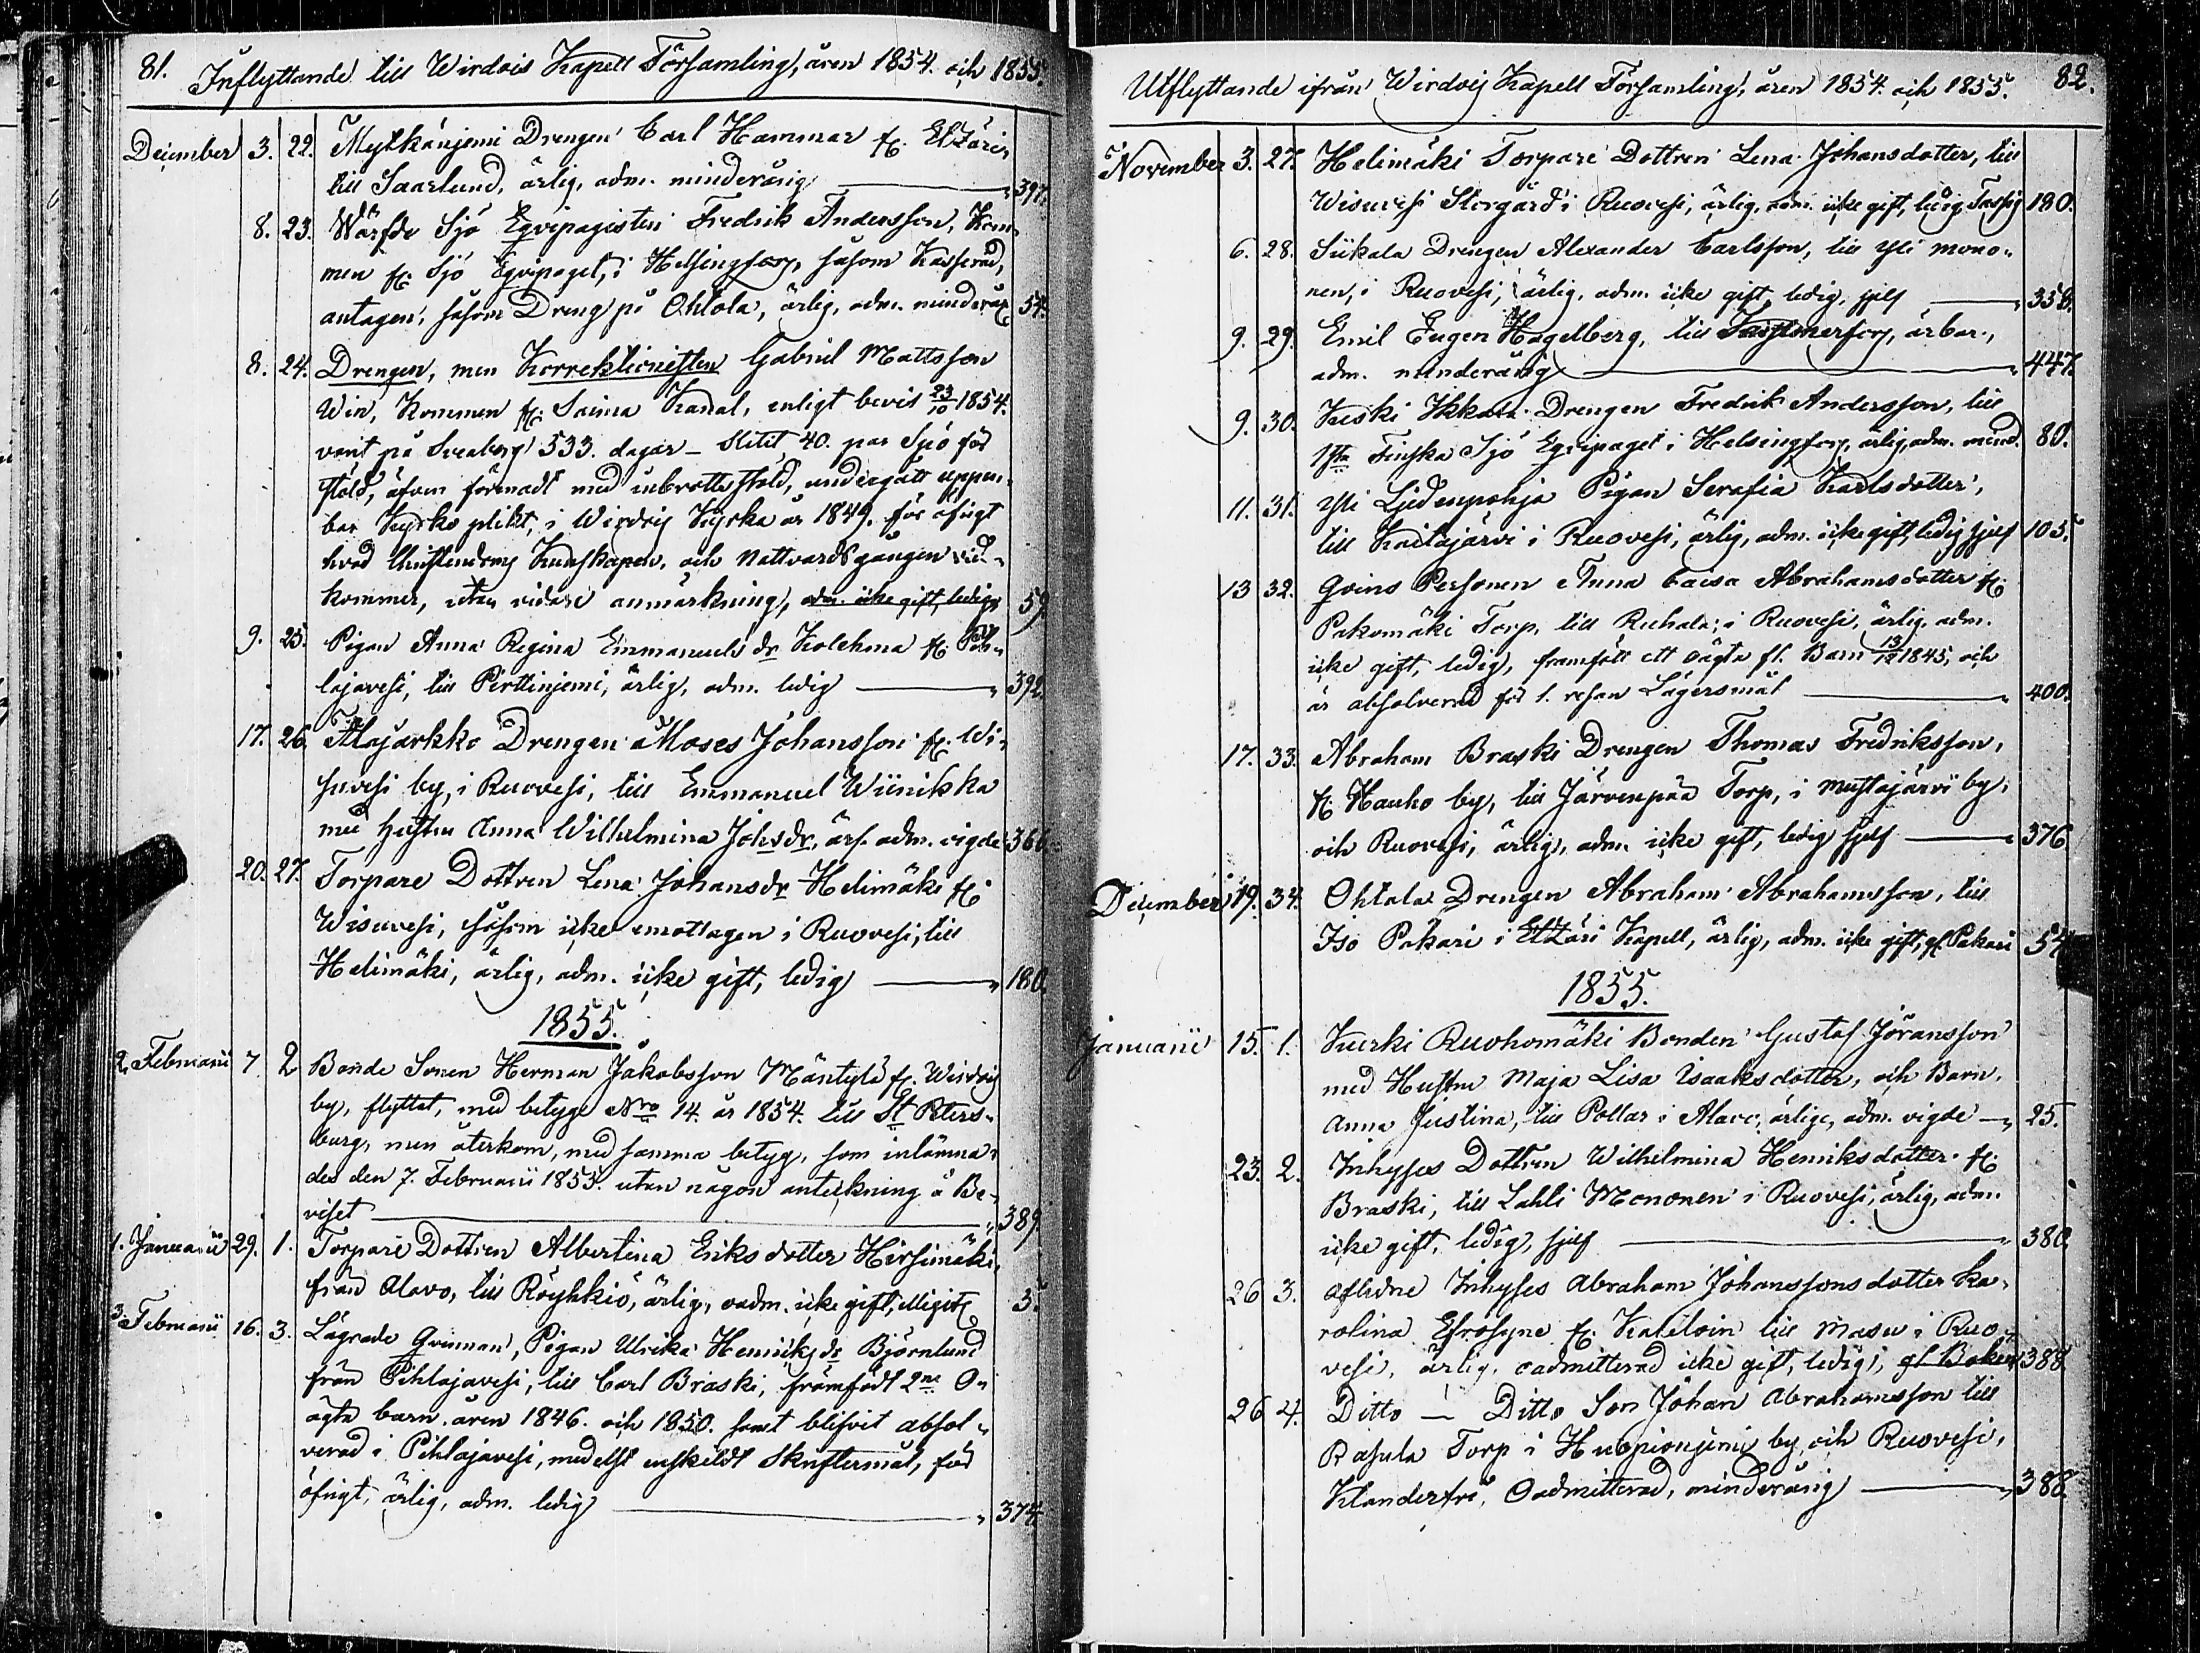 81. Inflyttande till Wirdois Kapell Församling, åren 1854. och 1855.
December 3. 22. Mytkänjemi Drengen Carl Hammar fr. Etzäri,
till Saarlund, ärlig, adm. minderårig 397.
8. 23. Wärfde Sjö Eqvipagisten Fredrik Andersson, Kom-
men fr. Sjö Eqvipaget, i Helsingfors, såsom Kasserad,
antagen, såsom Dreng på Ohtola, ärlig, adm. minderår. 54.
8. 24. Drengen, men Korrektionisten Gabriel Mattsson
Win, Kommen fr. Saima Kanal, enligt bevis 23/10 1854.
varit på Sveaborg 533. dagar – slitit 40. par Spö för
stöld, äfven förenadt med inbrottsstöld, undergått uppen-
bar Kyrko plikt, i Wirdois Kyrka år 1849. för öfrigt
hvad Christendoms Kunskapen, och Nattvardsgången vid-
kommer, utan vidare anmärkning, adm. icke gift, ledig 59.
9. 25. Pigan Anna Regina Emmanuels dr Kolehma fr. Pih-
lajavesi, till Pirttinjemi, ärlig, adm. ledig 392.
17. 26. Alajärkko Drengen Moses Johansson fr. Wi-
suvesi by, i Ruovesi, till Emmanuel Wiinikka
med Hustru Anna Wilhelmina Johsdr, ärl. adm. vigde 366.
20. 27. Torpare Dottren Lena Johansdr Helimäki fr.
Wisuvesi, såsom icke emottagen i Ruovesi, till
Helimäki, ärlig, adm. icke gift, ledig 180.
1855.
2. Februarii 7. 2 Bonde Sonen Herman Jakobsson Mäntylä fr. Wirdois
by, flyttat, med betyg Nro 14. år 1854. till St Peters-
burg, men återkom, med samma betyg, som inlämna-
des den 7. Februarii 1855. utan någon anteckning å Be-
viset 389.
1. Januarii 29. 1. Torpare Dottren Albertina Eriksdotter Hirsimäki,
från Alavo, till Röyhkiö, ärlig, oadm. icke gift, 3.
3. Februarii 16. 3. Lägrade Qvinnan, Pigan Ulrika Henriksdr Björnlund
från Pihlajavesi, till Carl Braski, framfödt 2ne O-
ägta barn åren 1846. och 1850. samt blifvit absol-
verad i Pihlajavesi, medelst enskildt Skriftermål, för
öfrigt, ärlig, adm. ledig 374.
Utflyttande ifrån Wirdois Kapell Församling, åren 1854. och 1855. 82.
November 3. 27. Helimäki Torpare Dottren Lena Johansdotter, till
Wisuvesi Storgård i Ruovesi, ärlig, adm. icke gift, ledig 180.
6. 28. Siikala Drengen Alexander Carlsson, till Yli mono-
nen, i Ruovesi, ärlig, adm. icke gift, ledig, sjelf 356.
9. 29. Emil Eugen Hagelberg, till Tammerfors, ärbar,
adm. minderårig 447.
9. 30. Kurki Ikkala Drengen Fredrik Andersson, till
1sta Finska Sjö Eqvipaget i Helsingfors, ärlig, adm. mind. 80.
11. 31. Yli Liedenpohja Pigan Serafia Karlsdotter,
till Kaitajärvi i Ruovesi, ärlig, adm. icke gift, ledig sjelf 105.
13 32. Qvins Personen Anna Caisa Abrahamsdotter fr.
Pakomäki Torp, till Ruhala i Ruovesi, ärlig, adm.
icke gift, ledig, framfött ett oägta fl. Barn 13/12 1845, och
är absolverad för 1. resan Lägersmål 400.
17. 33. Abraham Braski Drengen Thomas Fredriksson,
fr. Hauho by, till Järvenpää Torp, i Mustajärvi by,
och Ruovesi, ärlig, adm. icke gift, ledig sjelf 376
December 19. 34. Ohtola Drengen Abraham Abrahamsson, till
Iso Pakari i Etzäri Kapell, ärlig, adm. icke gift, gl. Pakari 54
1855.
Januarii 15. 1. Kurki Ruohomäki Bonden Gustaf Jöransson
med Hustru Maja Lisa Isaaksdotter, och Barn,
Anna Justina, till Pollar i Alavo, ärlige, adm. vigde 25.
23. 2. Inhyses Dottren Wilhelmina Henriksdotter fr.
Braski, till Lahli Mononen i Ruovesi, ärlig, adm.
icke gift, ledig, sjelf 380.
26 3. Aflidne Inhyses Abraham Johanssons dotter Ka-
rolina Efrosyne fr. till Masu i Ruo-
vesi, ärlig, oadmitterad icke gift, ledig, 388.
26 4. Ditto — Ditto Son Johan Abrahamsson till
Rasula Torp i Huopionjemi by, och Ruovesi,
Klanderfri, Oadmitterad, minderårig 388.